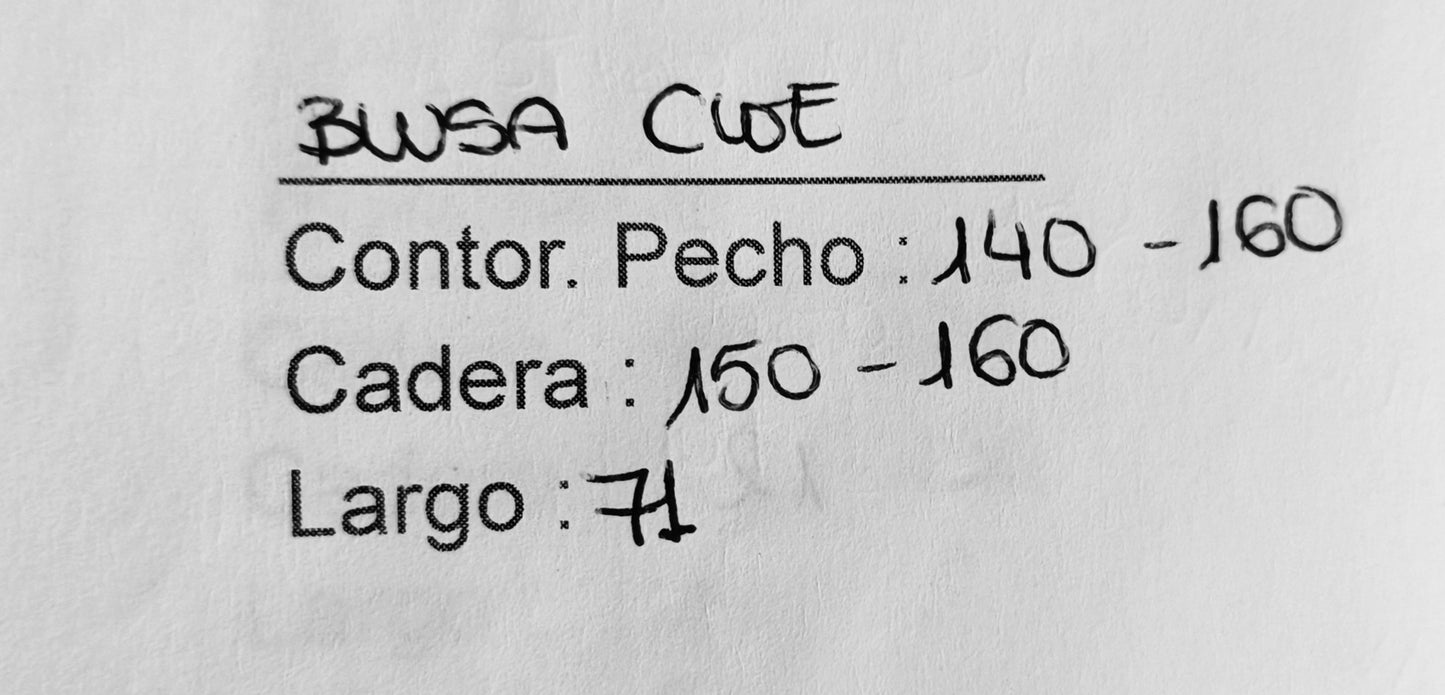 BLUSA CLOE
Contor. Pecho : 140 - 160
Cadera : 150 - 160
Largo : 71